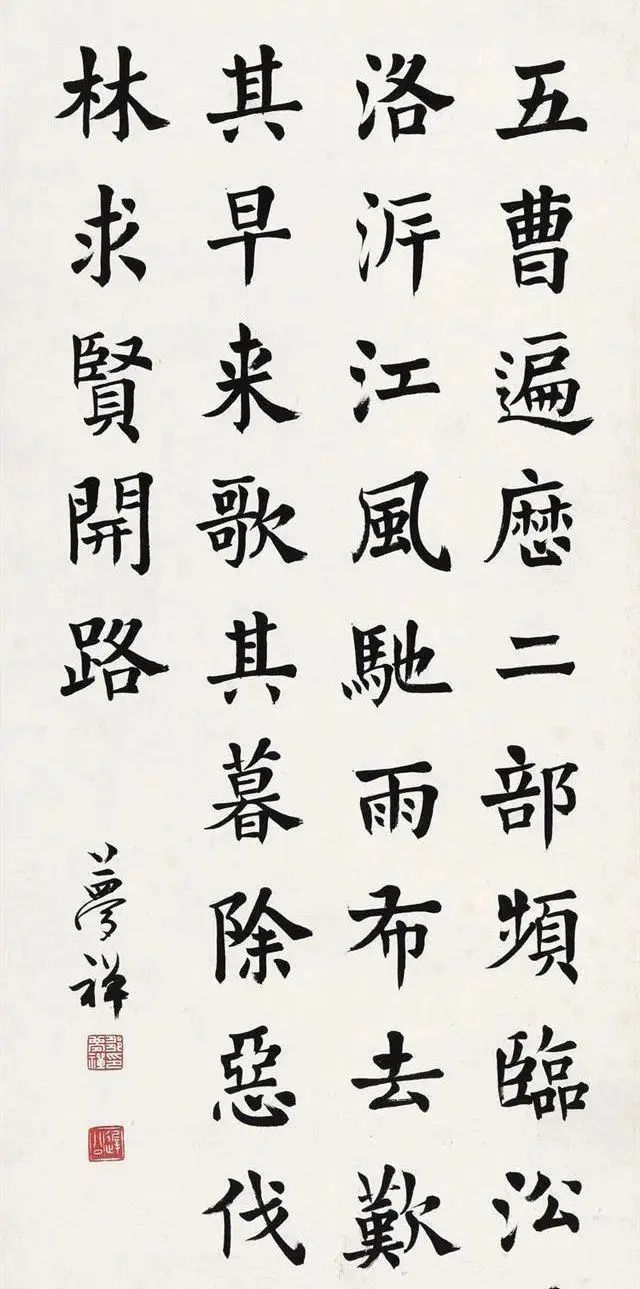 五曹遍歷二部頻臨㳂
洛泝江風馳雨布去歎
其早来歌其暮除惡伐
林求賢開路
夢禪